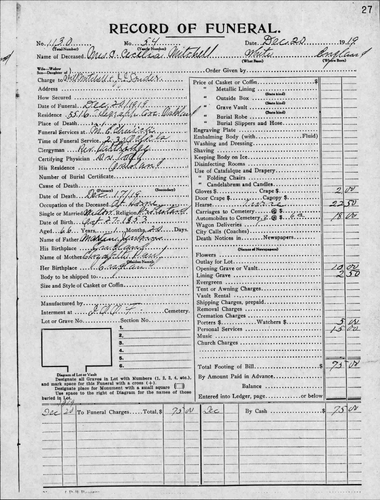 27
RECORD OF FUNERAL.
No. 1130 No. 54 Date, Dec 20 1919
(Total Number) (Yearly Number)
Name of Deceased, Mrs Mitchell White England
(What Race) (Where Born)
Wife—Widow
Son—Daughter of Order Given by
Charge to
Address
How Secured
Date of Funeral, Dec 20 1919
Residence, Telegraph Ave Oakland
Place of Death,
Funeral Services at M.E. Church
Time of Funeral Service, 2:30
Clergyman, Rev.
Certifying Physician, Dr
His Residence, Oakland
Number of Burial Certificate,
Cause of Death,
(Primary) (Secondary)
Date of Death, Dec 17/19
Occupation of the Deceased, At home
Single or Married, Widow Religion, Protestant
Date of Birth,
Aged, 66 Years, Months, Days
Name of Father,
His Birthplace, England
Name of Mother,
(Maiden Name)
Her Birthplace, England
Body to be shipped to
Size and Style of Casket or Coffin,
Manufactured by
Interment at I.O.O.F. Cemetery
Lot or Grave No. Section No.
1.
2.
3.
4.
5.
6.
Diagram of Lot or Vault
Designate all Graves in Lot with Numbers (1, 2, 3, 4, etc.), and mark space for this Funeral with a cross (+)
Designate place for Monument with a small square
Use space to the right of Diagram for the names of those buried in Lot.
Price of Casket or Coffin,
" Metallic Lining
" Outside Box
(State kind)
" Grave Vault
(State kind)
" Burial Robe
(State kind)
" Burial Slippers and Hose
Engraving Plate
Embalming Body (with Fluid)
Washing and Dressing,
Shaving
Keeping Body on Ice
Disinfecting Rooms
Use of Catafalque and Drapery
" Folding Chairs
" Candelabrum and Candles
Gloves $ Crape $ 2 00
Door Crape, Cappy $
Hearse, 22 50
Carriages to Cemetery @ $
Automobiles to Cemetery @ $ 18 00
Wagon Deliveries
City Calls (Coaches)
Death Notices in Newspapers
(Names of Newspapers)
Flowers
Outlay for Lot
Opening Grave or Vault 10 00
Lining Grave 2 50
Evergreen
Tent or Awning Charges
Vault Rental
Shipping Charges, prepaid
Removal Charges
Cremation Charges
Porters $ Watchers $ 5 00
Personal Services 15 00
Music
Church Charges
Total Footing of Bill $ 75 00
By Amount Paid in Advance
Balance
Entered into Ledger, page or below.
Dec 20 To Funeral Charges Total, $ 75 00 Dec By Cash $ 75 00